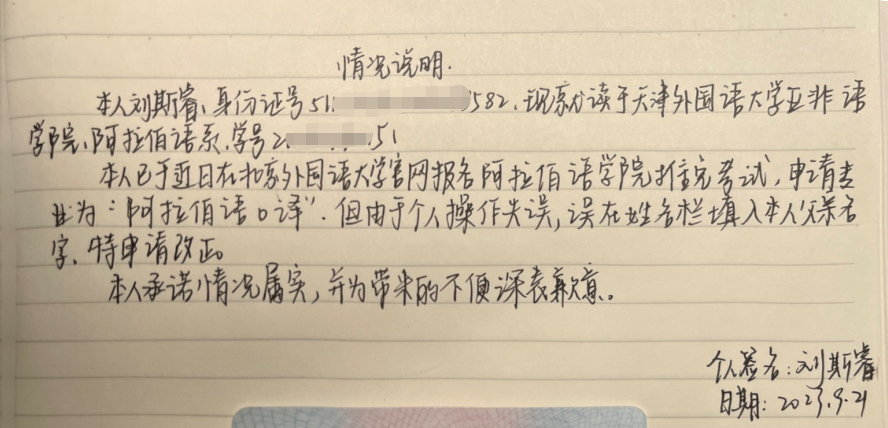 情况说明.
本人刘斯睿、身份证号51 582,现就读于天津外国语大学亚非语
学院、阿拉伯语系,学号2 51
本人已于近日在北京外国语大学官网报名阿拉伯语学院推免考试,申请专
业为:“阿拉伯语口译”.但由于个人操作失误,误在姓名栏填入本人父亲名
字、特申请改正。
本人承诺情况属实,并为带来的不便深表歉意。
个人签名:刘斯睿
日期:2023.9.21